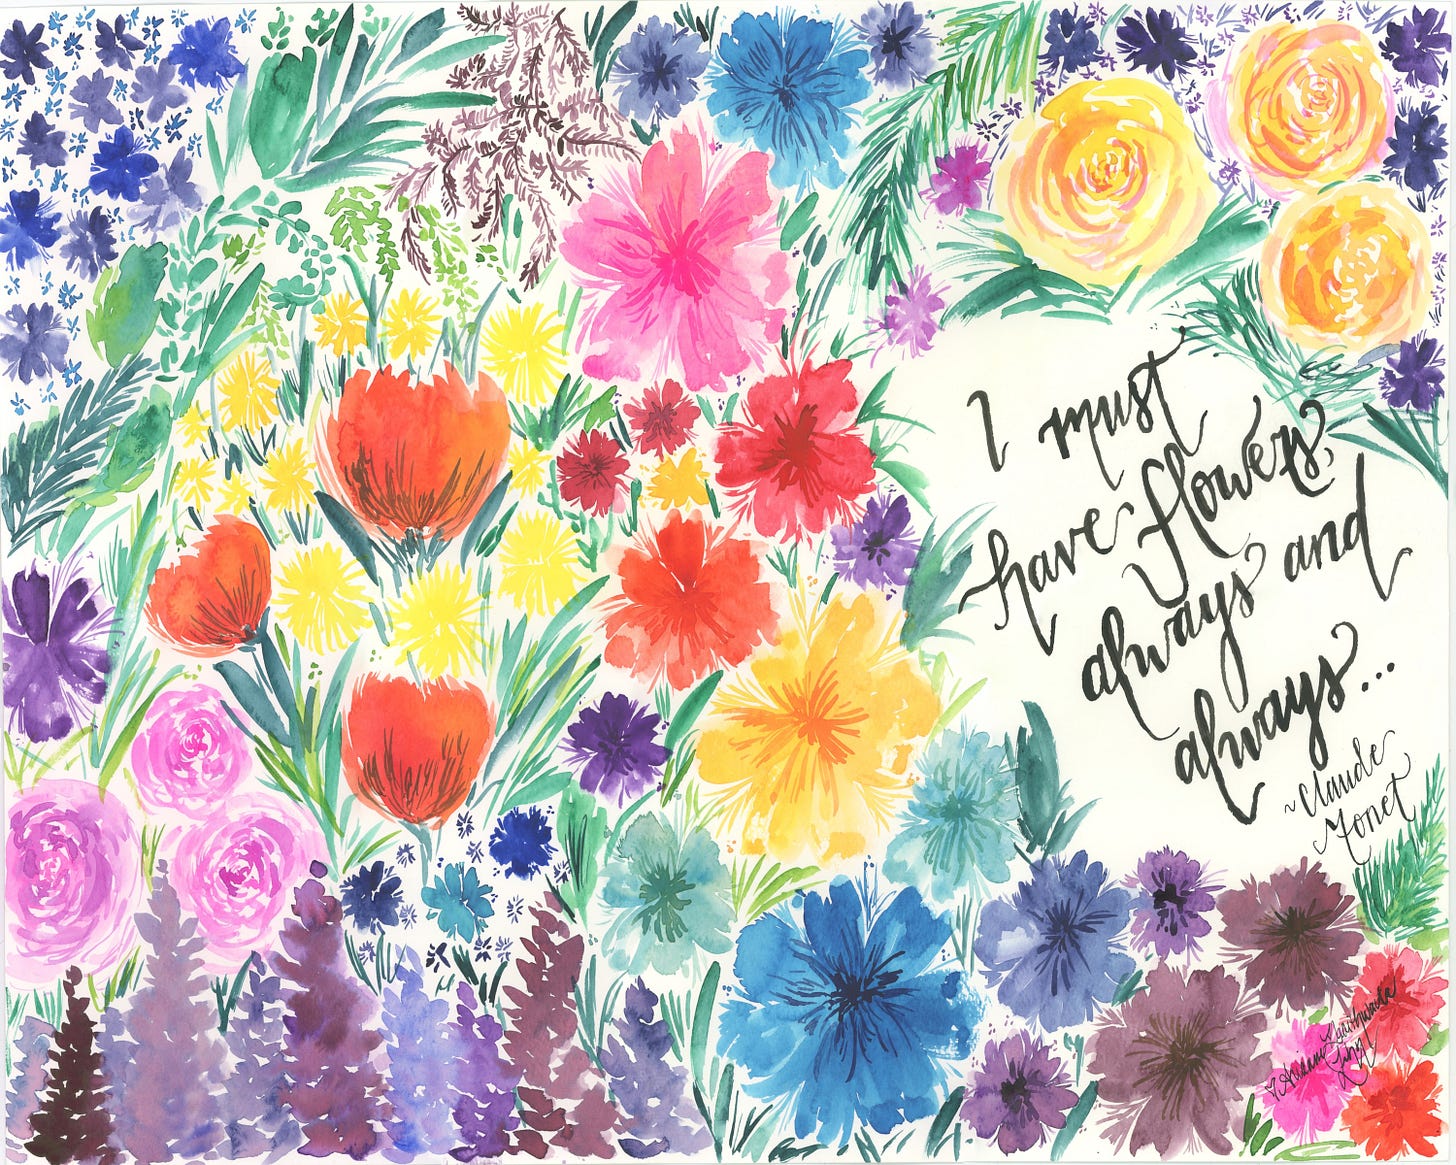 I must
have flowers,
always and
always...
~Claude
Monet